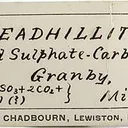 EADHILLIT
Sulphate-Carb
Granby,
SO3+2CO2+}
Mi
CHADBOURN, LEWISTON,